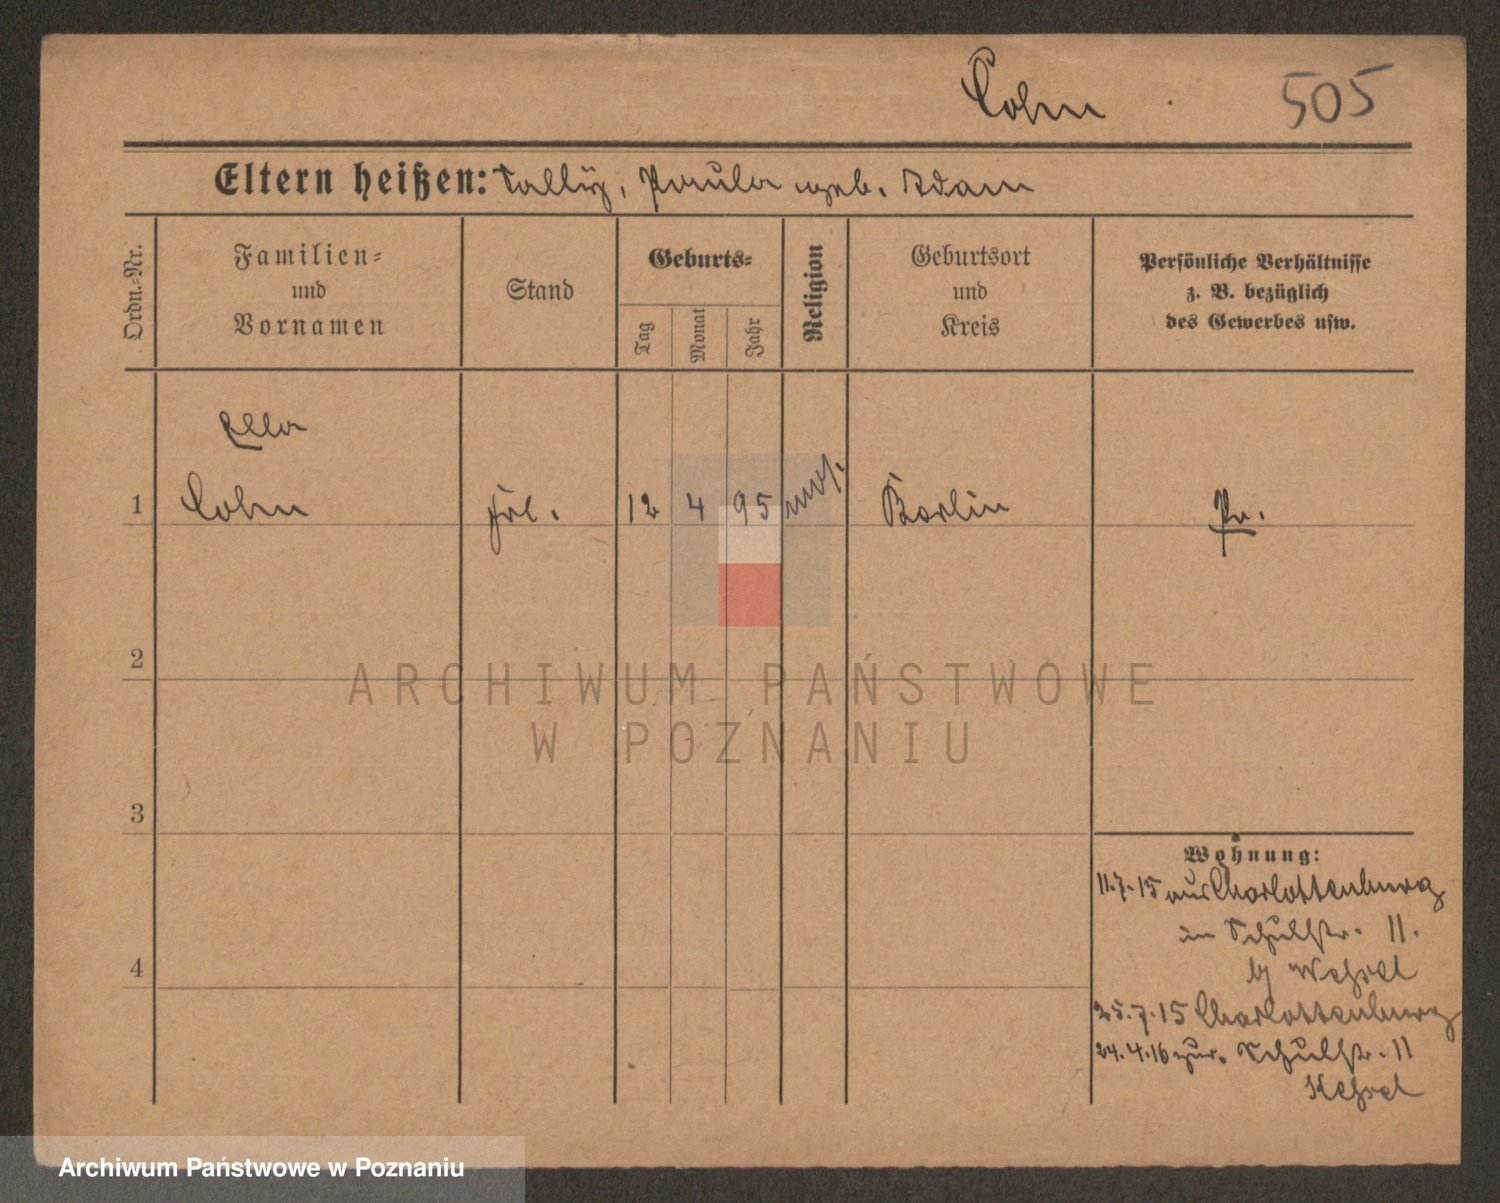 Cohn 505
Eltern heißen: Sally, Paula geb. Adam
Ordn.-Nr.
Familien-
und
Vornamen
Stand
Geburts-
Tag
Monat
Jahr
Religion
Geburtsort
und
Kreis
Persönliche Verhältnisse
z. B. bezüglich
des Gewerbes usw.
Ella
1 Cohn Frl. 12 4 95 mos. Berlin Pr.
2
ARCHIWUM PAŃSTWOWE
W POZNANIU
3
Wohnung:
11.7.15 aus Charlottenburg
in Schulstr. 11.
b/
4
25.7.15 Charlottenburg
24.4.16 zur. Schulstr. 11
Archiwum Państwowe w Poznaniu